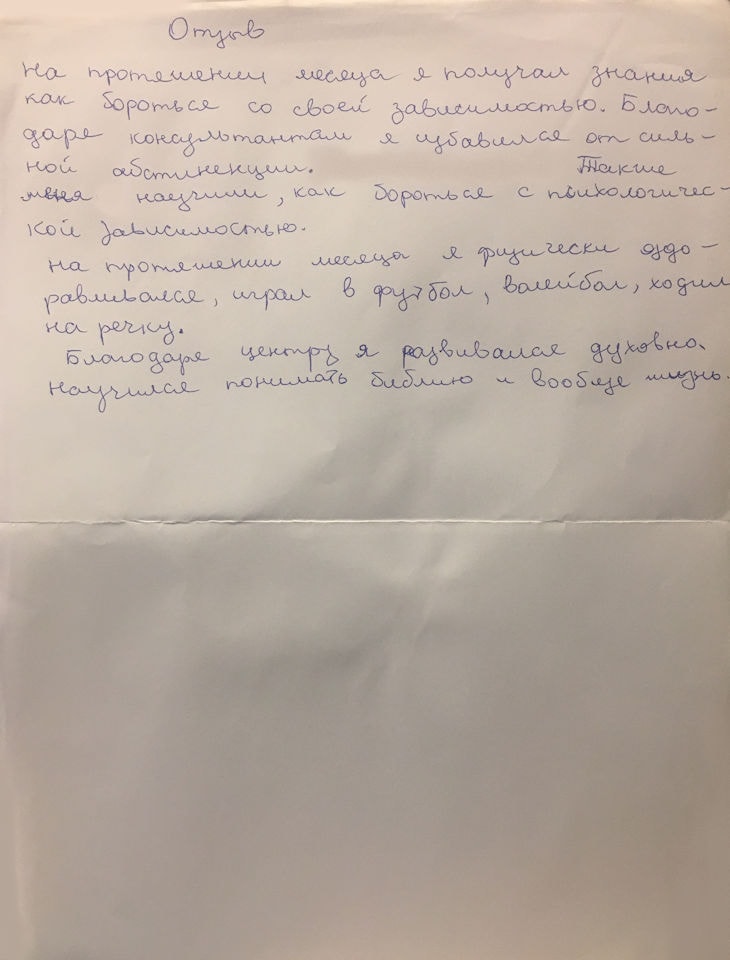 Отзыв
На протяжении месяца я получал знания
как бороться со своей зависимостью. Благо-
даря консультантам я избавился от силь-
ной абстиненции. Также
меня научили, как бороться с психологичес-
кой зависимостью.
На протяжении месяца я физически оздо-
равливался, играл в футбол, валейбол, ходил
на речку.
Благодаря центру я развивался духовно.
Научился понимать библию и вообще жизнь.